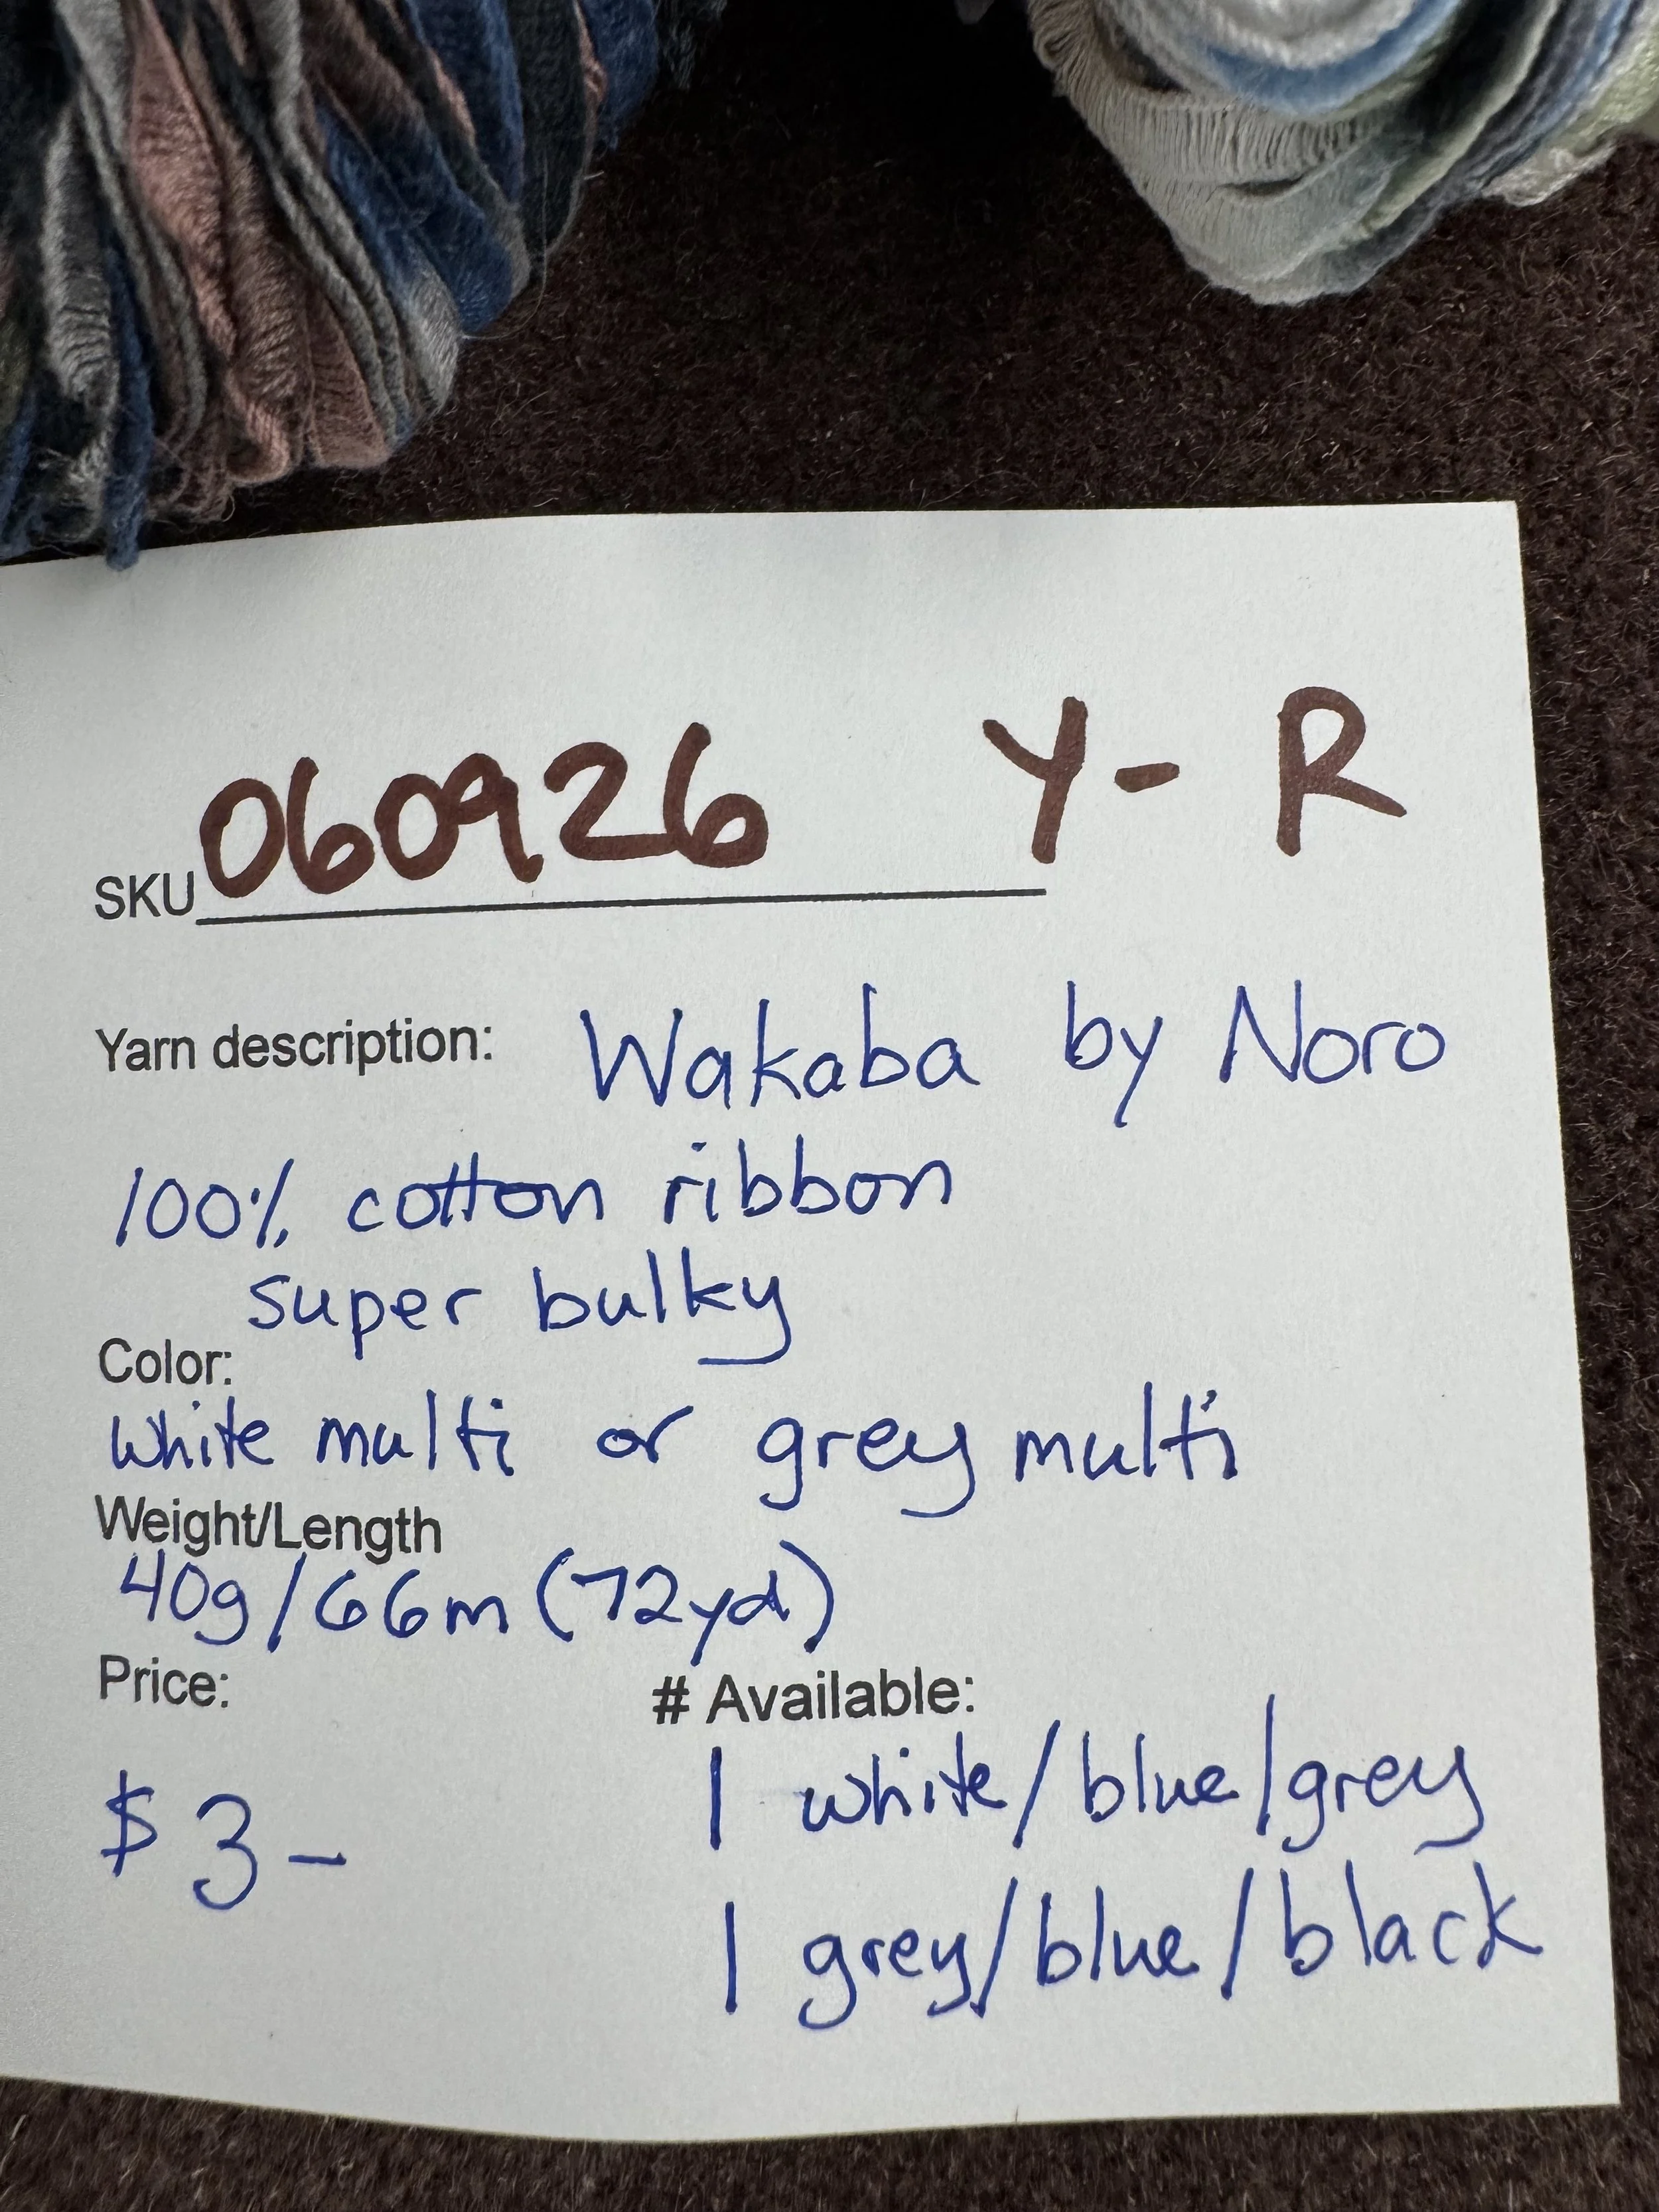 SKU 060926 Y- R
Yarn description: Wakaba by Noro
100% cotton ribbon
super bulky
Color:
white multi or grey multi
Weight/Length
40g/66m (72yd)
Price: # Available:
1 white/blue/grey
$3-
1 grey/blue/black